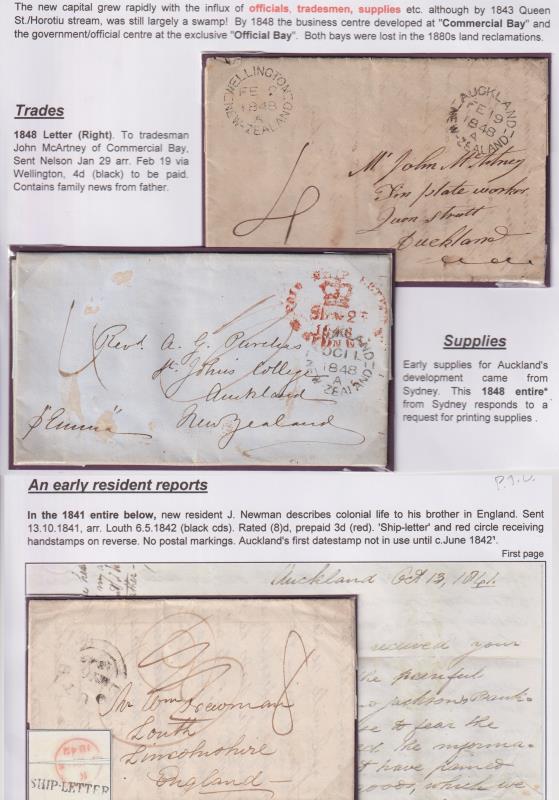 The new capital grew rapidly with the influx of officials, tradesmen, supplies etc. although by 1843 Queen
St./Horotiu stream, was still largely a swamp! By 1848 the business centre developed at "Commercial Bay" and
the government/official centre at the exclusive "Official Bay". Both bays were lost in the 1880s land reclamations.
Trades
1848 Letter (Right). To tradesman
John McArtney of Commercial Bay,
Sent Nelson Jan 29 arr. Feb 19 via
Wellington, 4d (black) to be paid.
Contains family news from father.
WELLINGTON
FE 9
1848
A
NEW-ZEALAND
AUCKLAND
FE 19
1848
A
NEW-ZEALAND
4
Mr John McArtney
Tin plate worker
Queen strutt
Auckland
PAID SHIP LETTER
SYDNEY
AUCKLAND
OC 11
1848
A
NEW-ZEALAND
Revd. A. G. Purchas
St. Johns College
Auckland
New Zealand
p "Emma"
Supplies
Early supplies for Auckland's
development came from
Sydney. This 1848 entire*
from Sydney responds to a
request for printing supplies .
P.T.O.
An early resident reports
In the 1841 entire below, new resident J. Newman describes colonial life to his brother in England. Sent
13.10.1841, arr. Louth 6.5.1842 (black cds). Rated (8)d, prepaid 3d (red). 'Ship-letter' and red circle receiving
handstamps on reverse. No postal markings. Auckland's first datestamp not in use until c.June 1842¹.
First page
Auckland Oct 13, 1841.
received your
the painful
Jacksons Bank
to fear the
the informa-
have joined
which we
8
Mr Wm Newman
Louth
Lincolnshire
England
1842
SHIP-LETTER